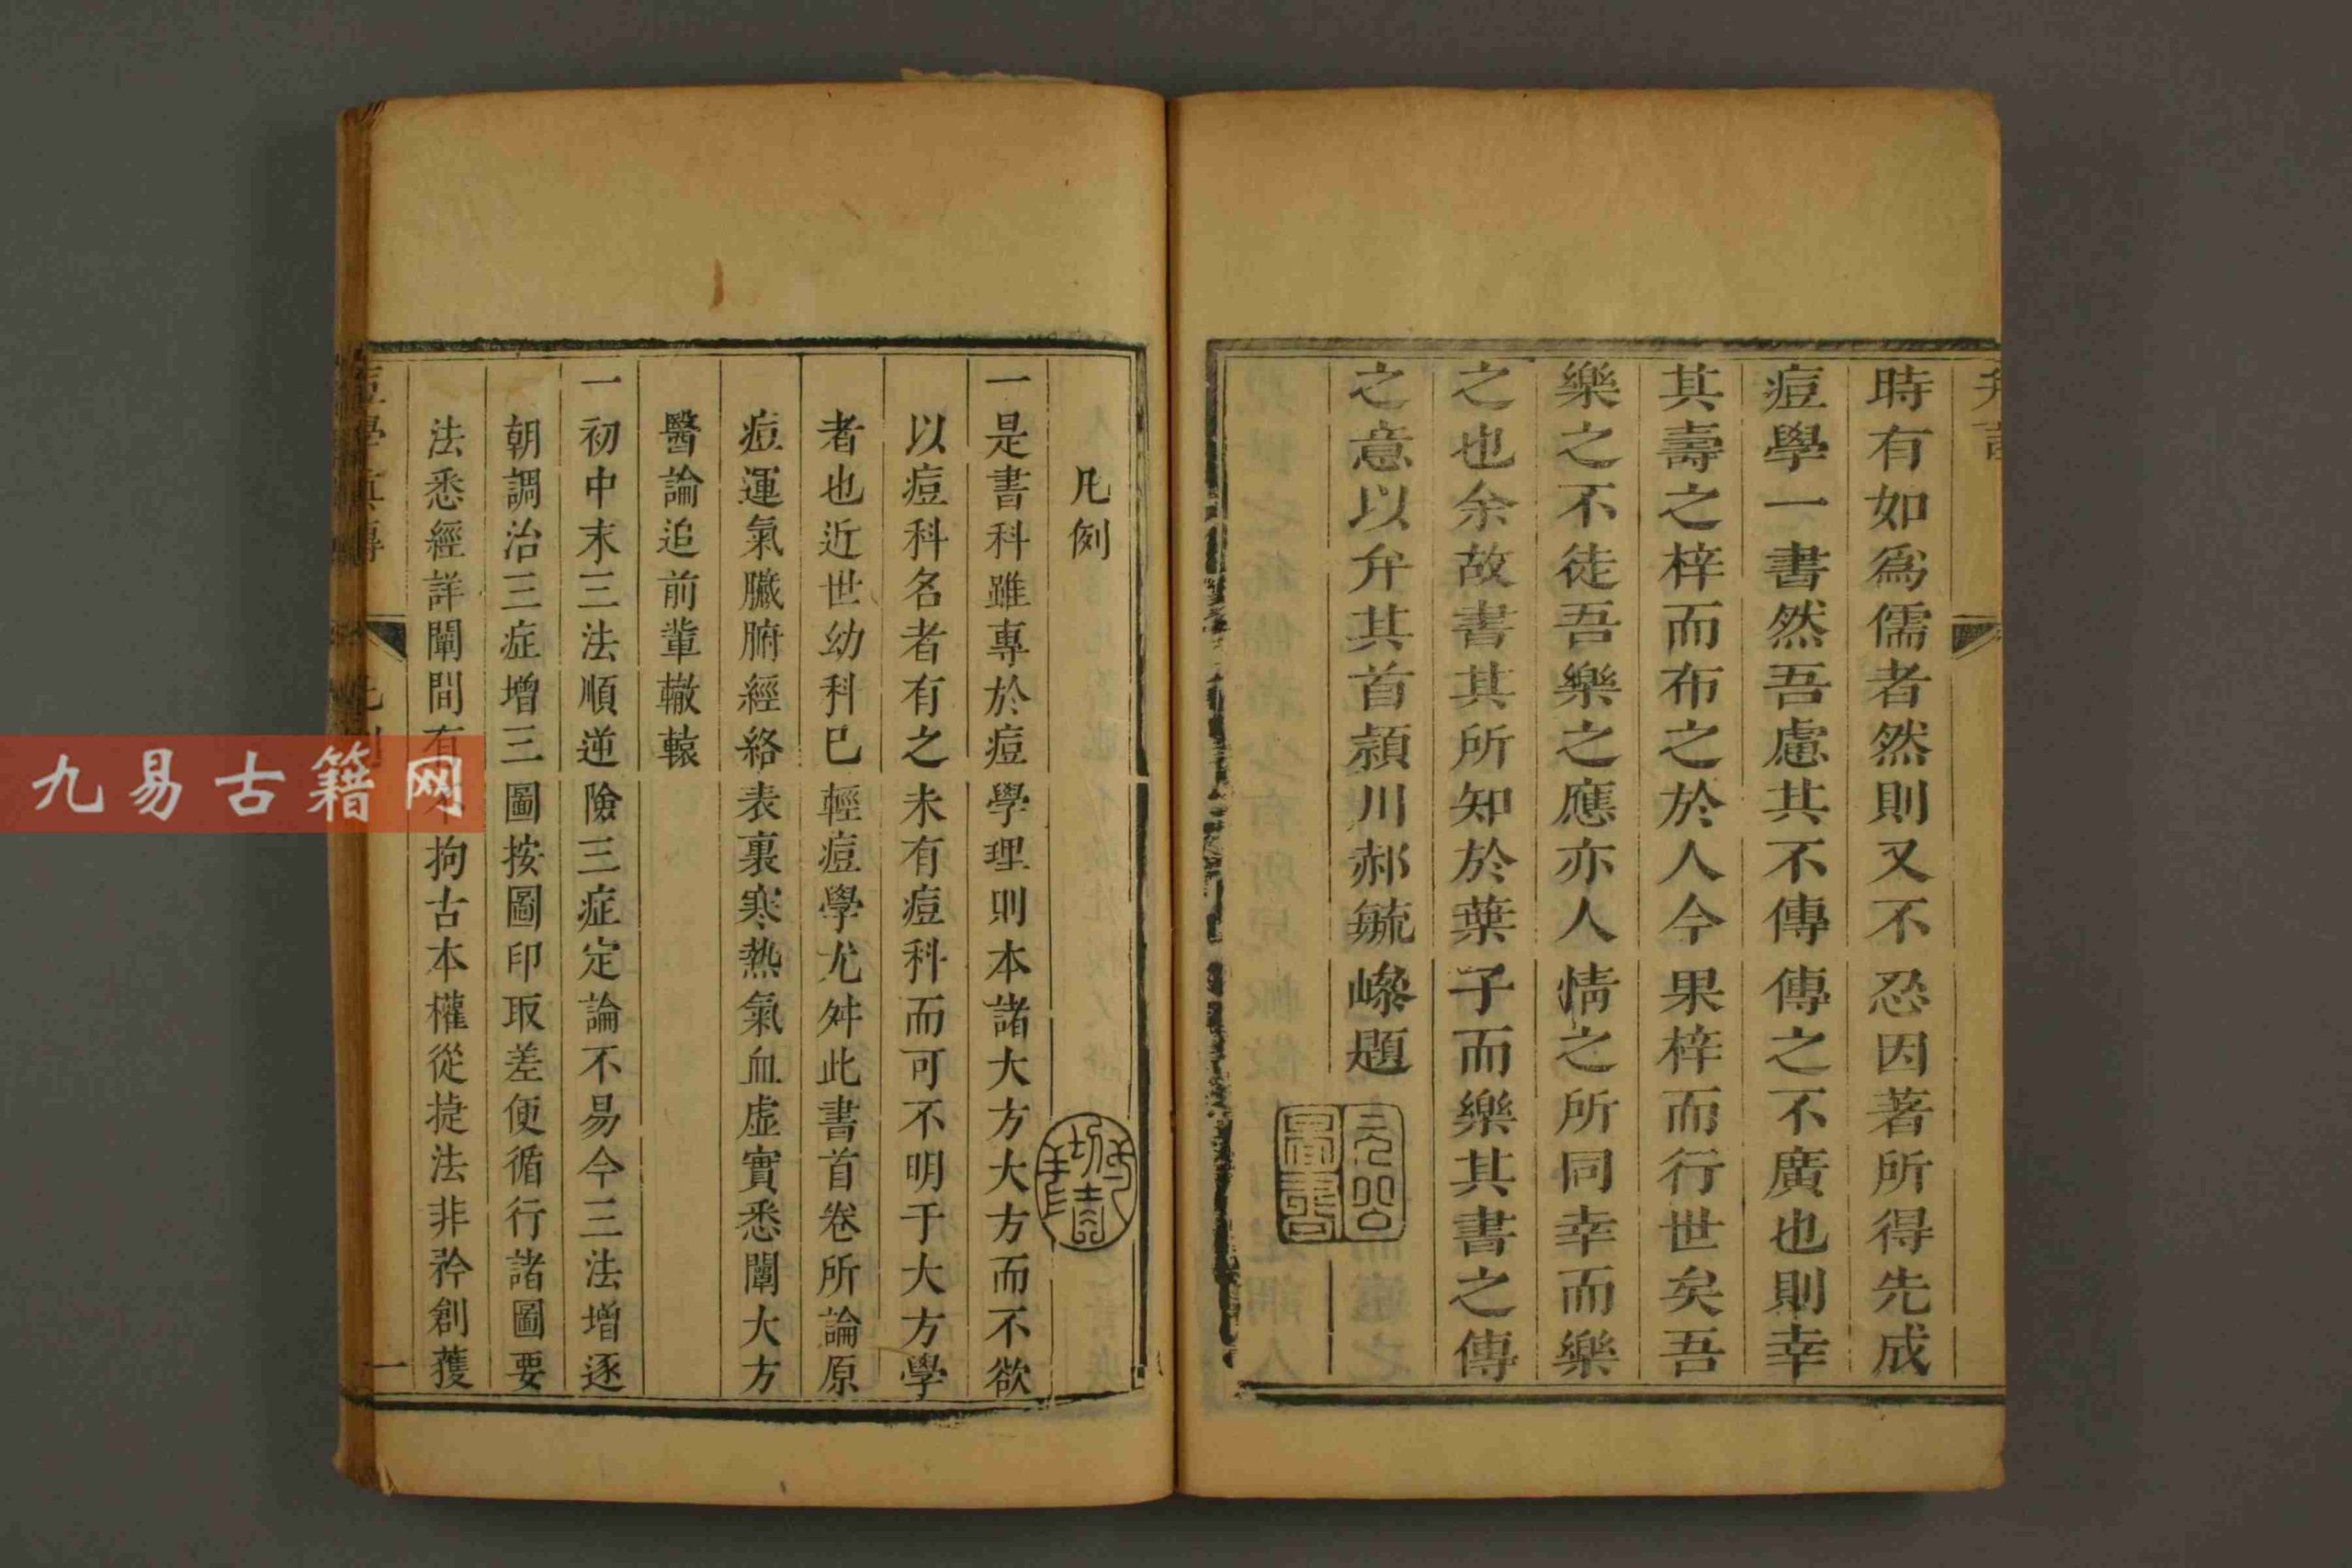 弁言
時有如爲儒者然則又不忍因著所得先成
痘學一書然吾慮其不傳傳之不廣也則幸
其壽之梓而布之於人今果梓而行世矣吾
樂之不徒吾樂之應亦人情之所同幸而樂
之也余故書其所知於葉子而樂其書之傳
之意以弁其首潁川郝毓嵾題
凡例
一是書科雖專於痘學理則本諸大方大方而不欲
以痘科名者有之未有痘科而可不明于大方學
者也近世幼科已輕痘學尤舛此書首卷所論原
痘運氣臟腑經絡表裏寒熱氣血虛實悉闡大方
醫論追前輩轍轅
一初中末三法順逆險三症定論不易今三法增逐
朝調治三症增三圖按圖印取差便循行諸圖要
法悉經詳闡間有不拘古本權從捷法非矜創獲
痘學真傳
凡例
一
九易古籍网